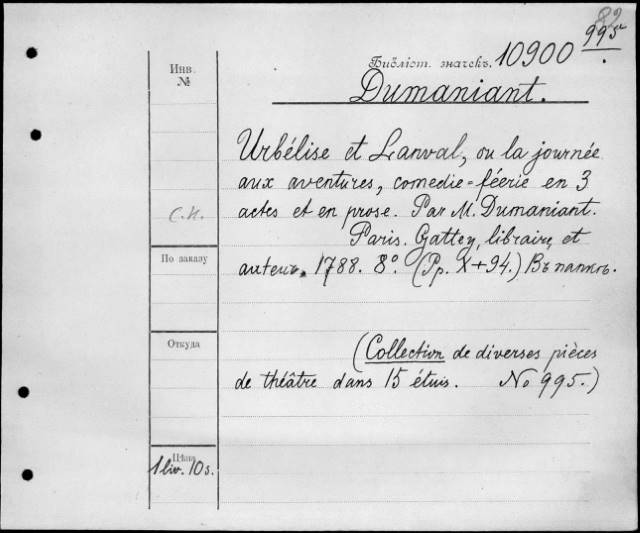 82
995
Библіот. значекъ. 10900
Инв.
№
Dumaniant.
Urbélise et Lanval, ou la journée
aux aventures, comedie=féerie en 3
С.Н.
actes et en prose. Par M. Dumaniant.
Paris. Gattey, libraire, et
По заказу
auteur, 1788. 8º. (Pp. X+94.) Въ папкѣ.
Откуда
(Collection de diverses pièces
de théâtre dans 15 étuis. No 995.)
Цѣна
1 liv. 10 s.